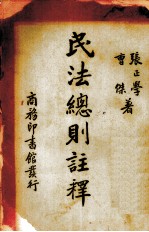 張正學
曹傑 著
民法總則註釋
商務印書館發行